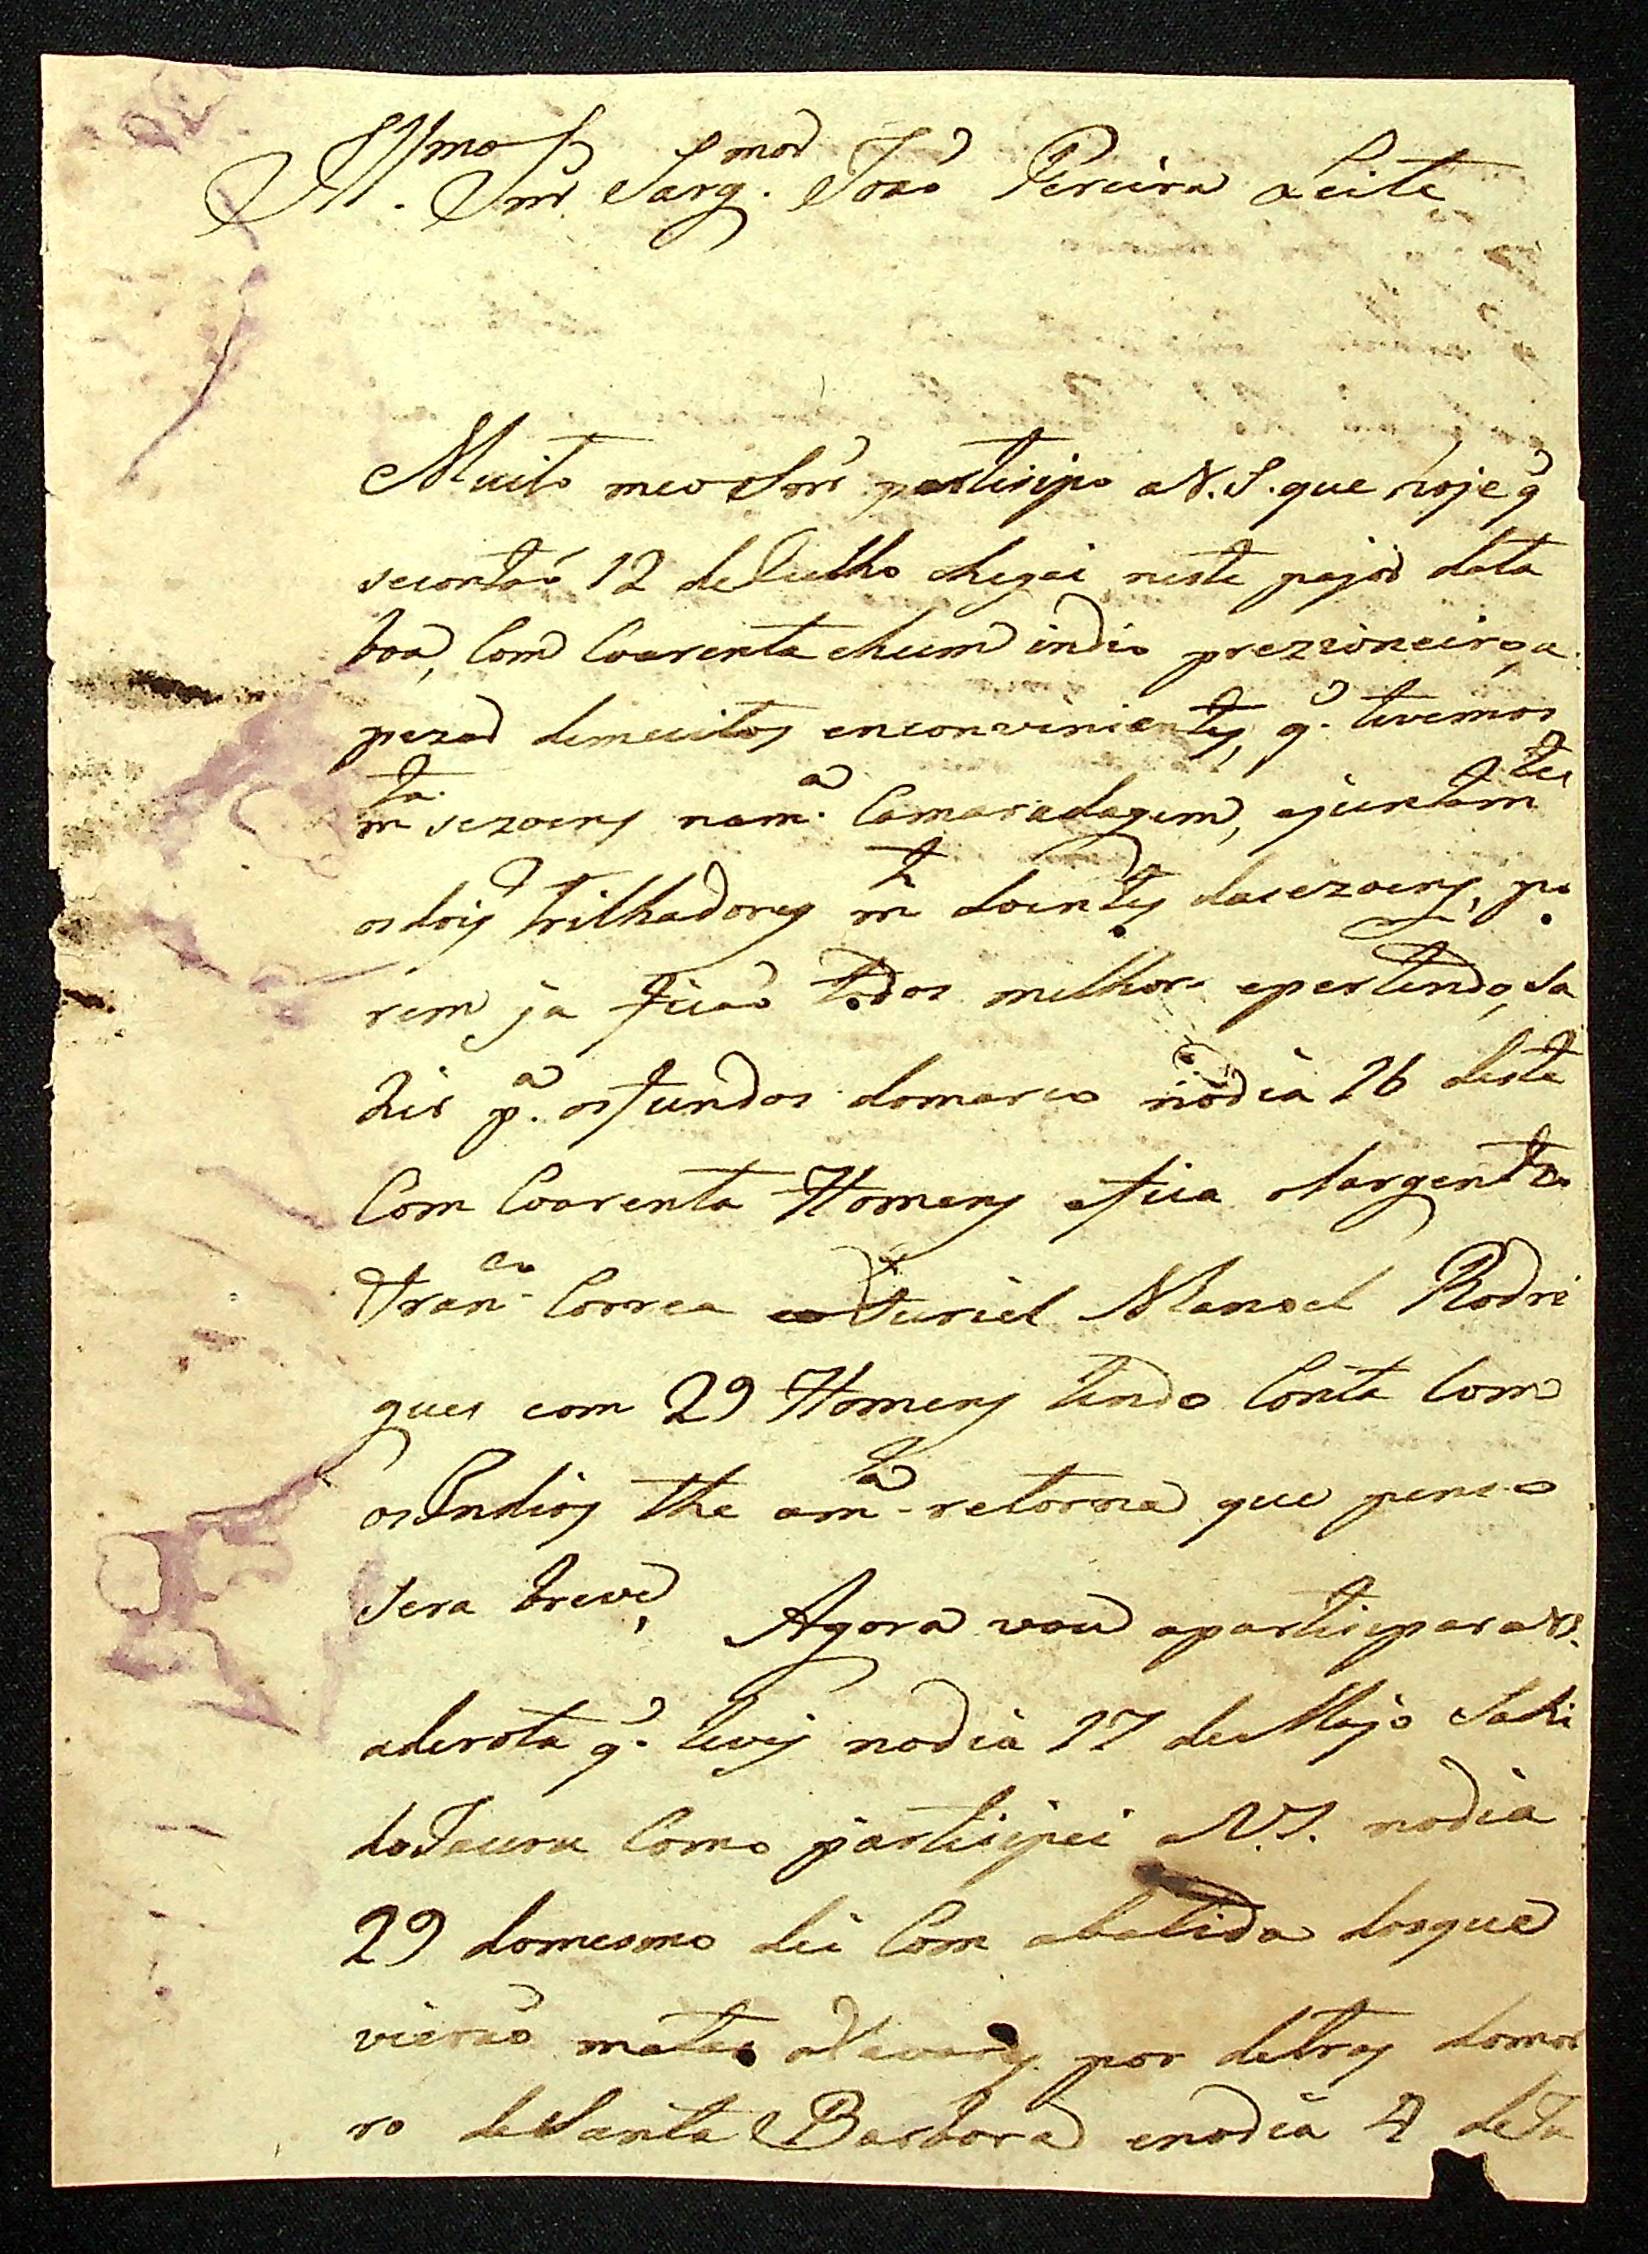 Ill.mo Snr̃ Sarg. mor João Pereira Leite
Muito meo Snr̃ partisipo a V. S. que hoje q̃
secontaõ 12 de Julho cheguei neste pajod data
boa, Com Coarenta ehum indio prezioneiro, a
pezad demuitos enconvinientes, q̃. tivemos
m.ta sezoens nam.a Camaradagem, ajuntam.tes
osdois trilhadores m.to doentes dasezoens, po
rem ja ficaõ todos milhor epertendo, sa
hir p.a osfundos domarco nodia 16 deste
Com Coarenta Homens efica oSargento
Fran.co Correa eoFuriel Manoel Rodri
gues com 29 Homens tendo Conta Com
osIndios the am.a retorna que penso
sera breve, Agora vou apartisipar aVS.
aderota q̃. tivij nodia 17 de Mayo Sahi
doJauru Como partisipei aVS. nodia
29 domesmo dei Com abatida dosque
vieraõ matar oAlvares por detras domor
ro deSanta Barbora enodia 4 deJu